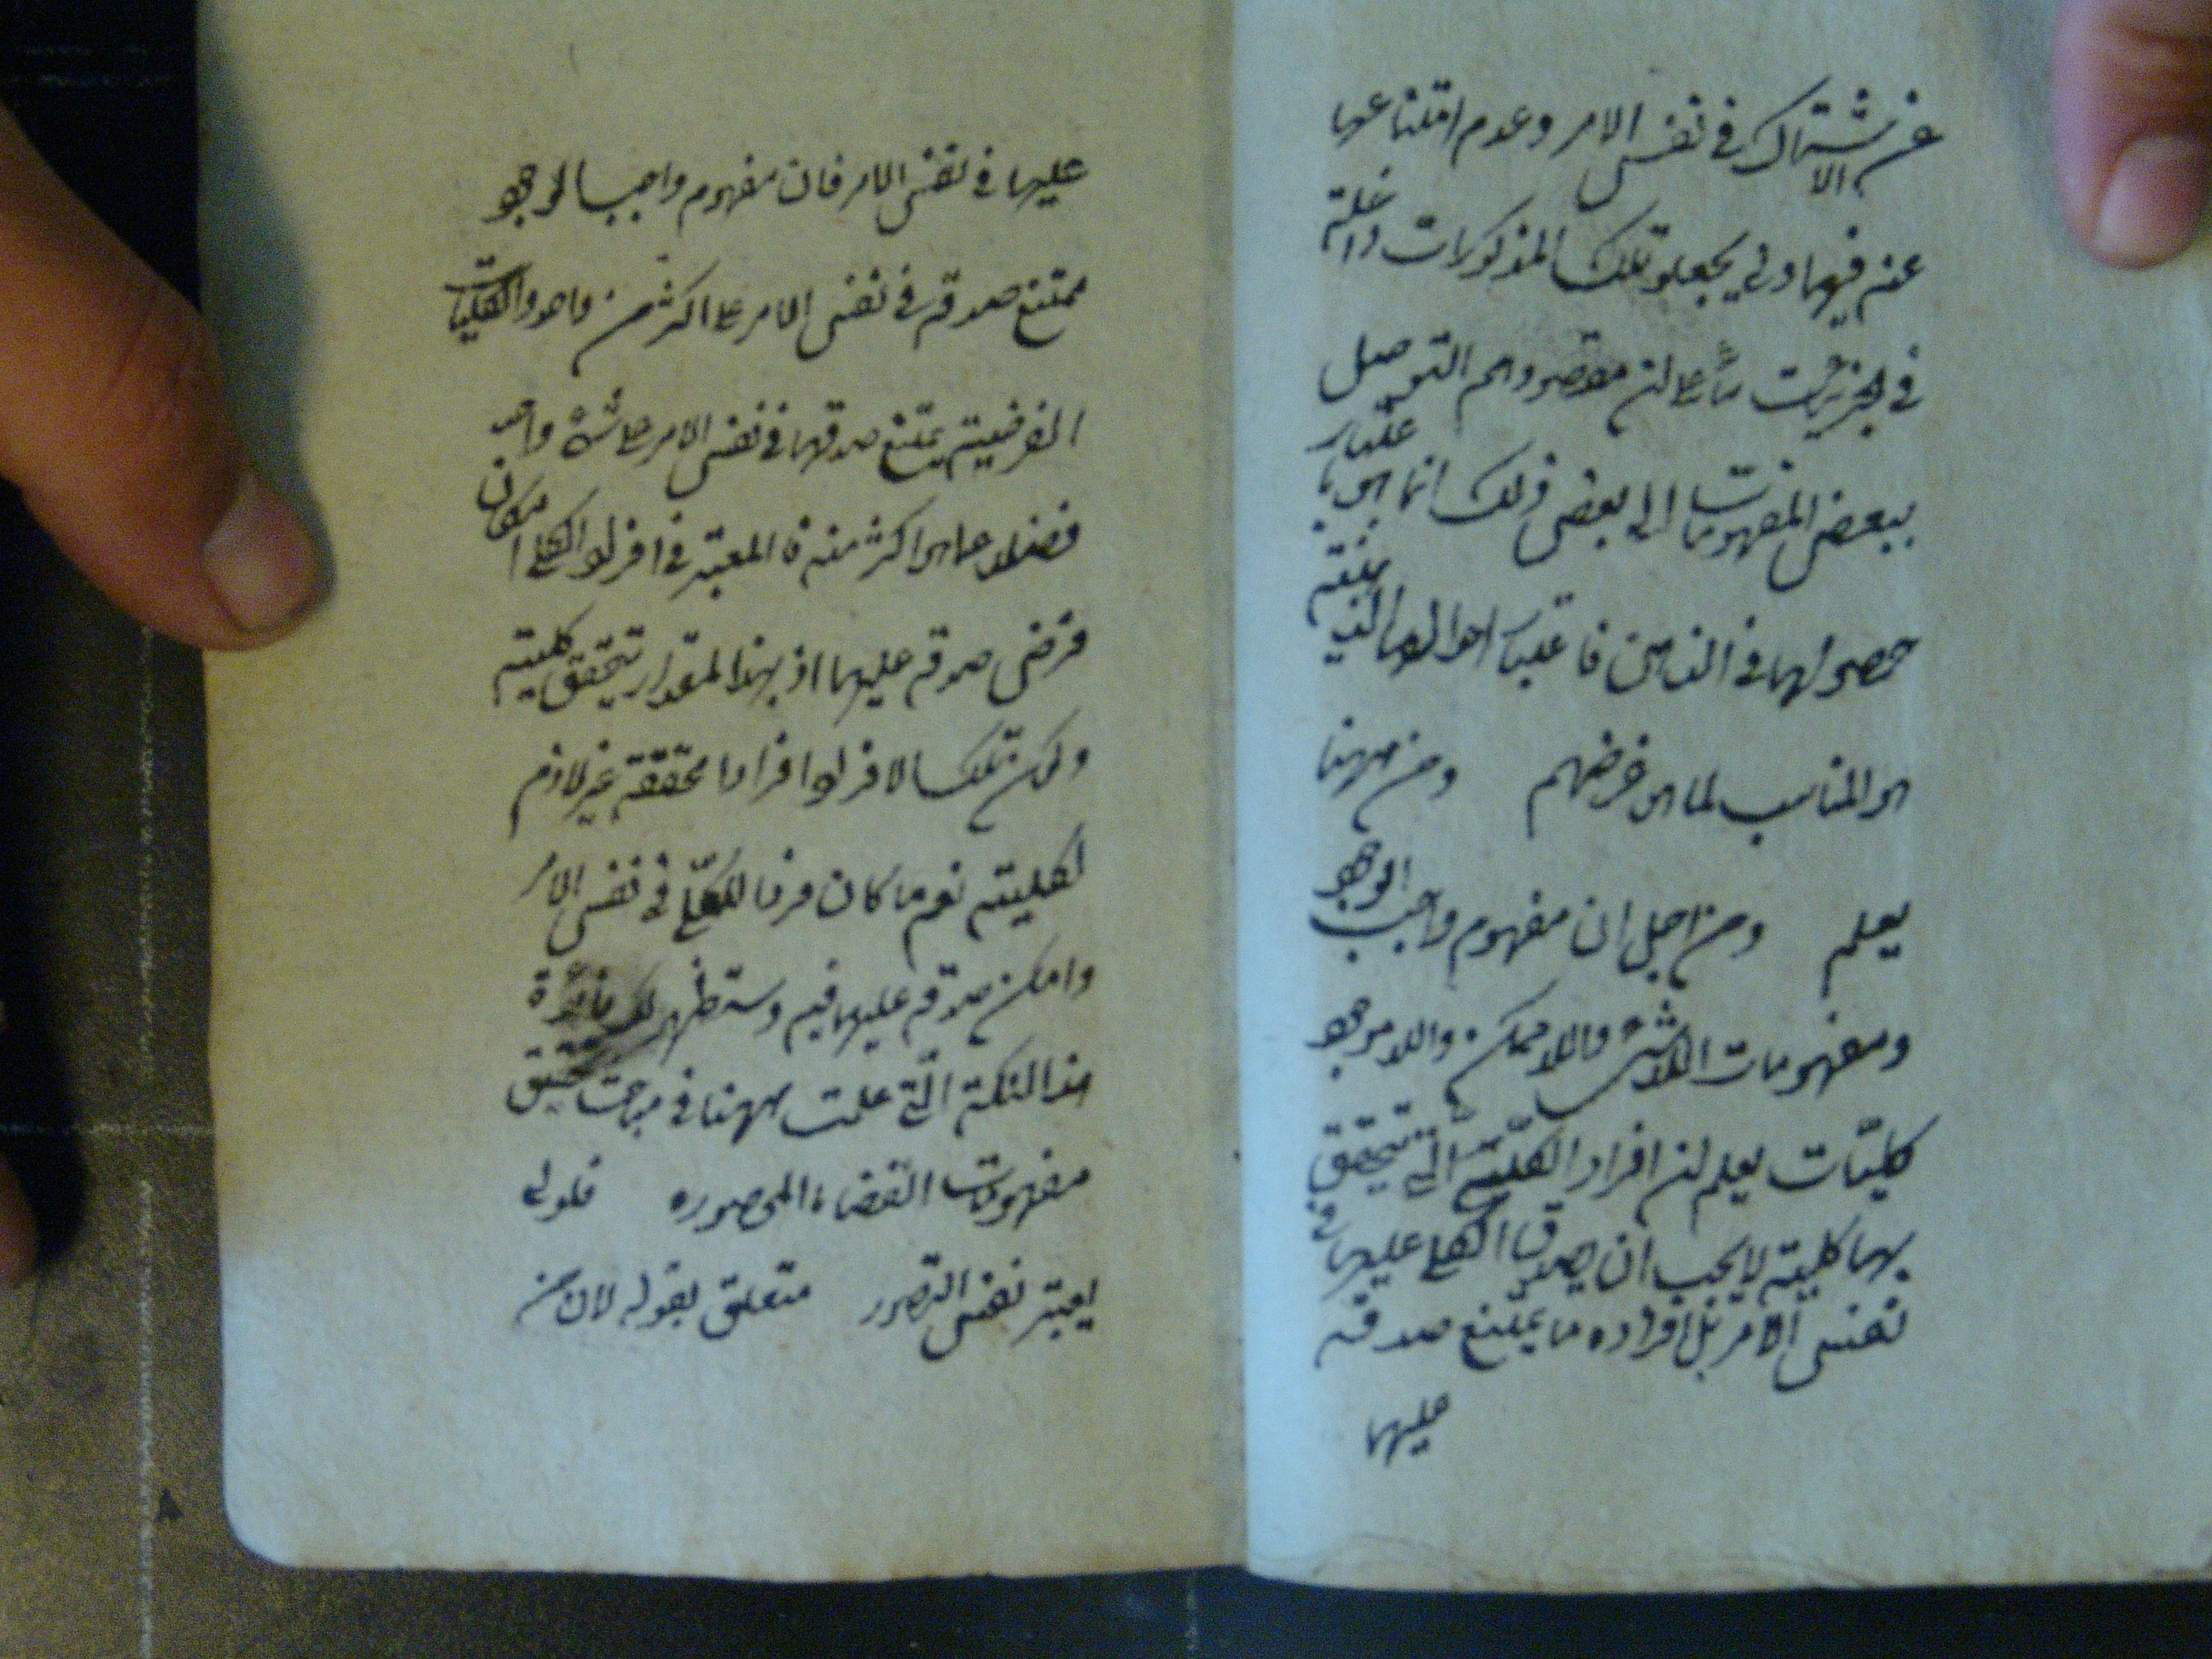 عن الاشتراك في نفس الامر وعدم امتناعها
عنه فيهما ولم يجعلوا تلك المذكورات داخلة
في الجزئيات بناء على ان مقصودهم التوصل
ببعض المفهومات الى بعض وذلك انما هو باعتبار
حصولها في الذهن فاعتبار احوالها الذهنية
هو المناسب لما هو غرضهم ومن ههنا
يعلم ومن اجل ان مفهوم واجب الوجود
ومفهومات اللاشئ واللاممكن واللاموجود
كليات يعلم ان افراد الكلية التي تتحقق
بها كليته لا يجب ان يصدق الكلي عليها في
نفس الامر بل افراده ما يمتنع صدقه
عليها
عليها في نفس الامر فان مفهوم واجب الوجود
ممتنع صدقه في نفس الامر على اكثر من واحد والكليات
الفرضية يمتنع صدقها في نفس الامر على شئ واحد
فضلا عما هو اكثر منه فالمعتبر في افراد الكلي امكان
فرض صدقه عليها اذ بهذا المقدار يتحقق كليته
وكون تلك الافراد افرادا محققة غير لازم
لكليته نعم ما كان فردا للكلي في نفس الامر
وامكن صدقه عليها فيه وستظهر لك فائدة
هذا النكتة التي علمت ههنا في مباحث تحقيق
مفهومات القضاء المحصوره فلو لم
يعتبر نفس التصور متعلق بقوله لان من